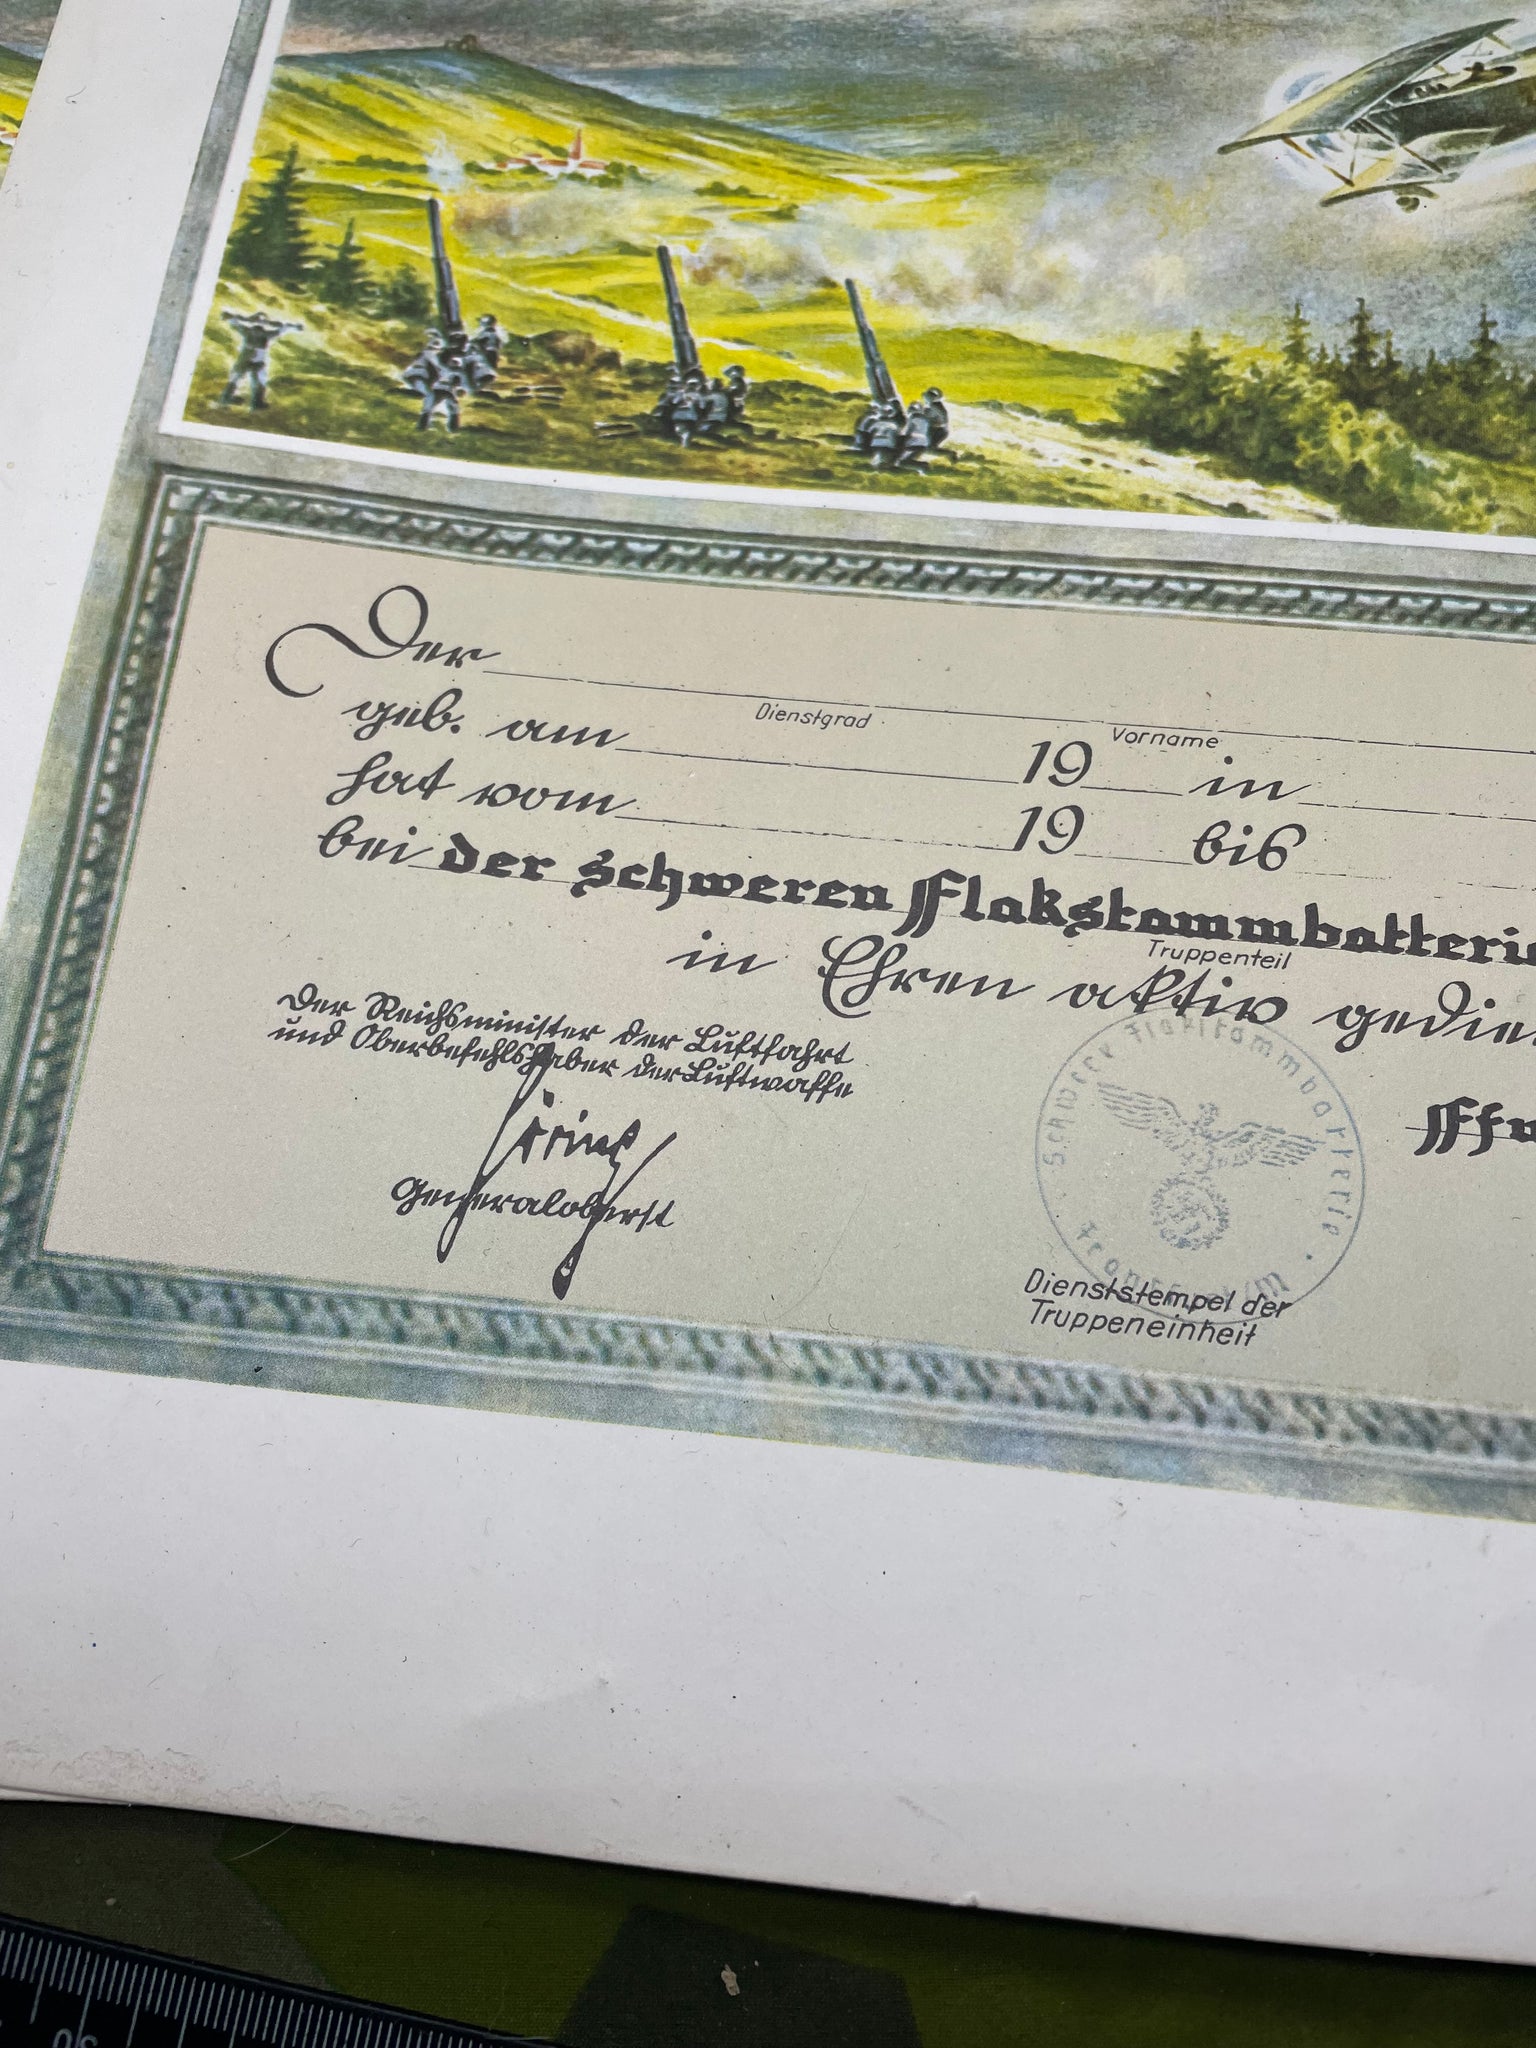 Der
Dienstgrad Vorname
geb. am 19 in
hat vom 19 bis
bei der schweren Flakstammbatterie
Truppenteil
in Ehren aktiv gedie
Der Reichsminister der Luftfahrt
und Oberbefehlshaber der Luftwaffe
Göring
Generaloberst
Schwere Flakstammbatterie
Dienststempel der
Truppeneinheit